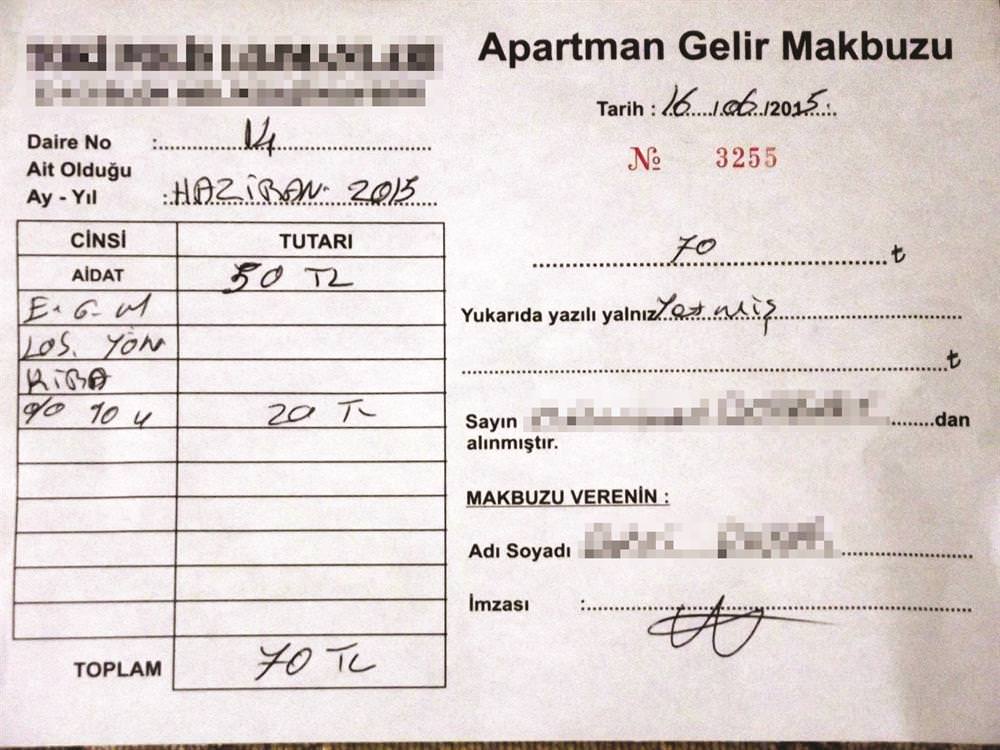 Apartman Gelir Makbuzu
Tarih : 16 / 06 /2015
№ 3255
Daire No : 14
Ait Olduğu
Ay - Yıl : HAZİRAN 2015
CİNSİ TUTARI
AİDAT 50 TL
E. G. M
LOS. YÖN
KİRA
% 10 u 20 TL
TOPLAM 70 TL
70 ₺
Yukarıda yazılı yalnız Yetmiş
₺
Sayın ........dan
alınmıştır.
MAKBUZU VERENİN :
Adı Soyadı
İmzası :